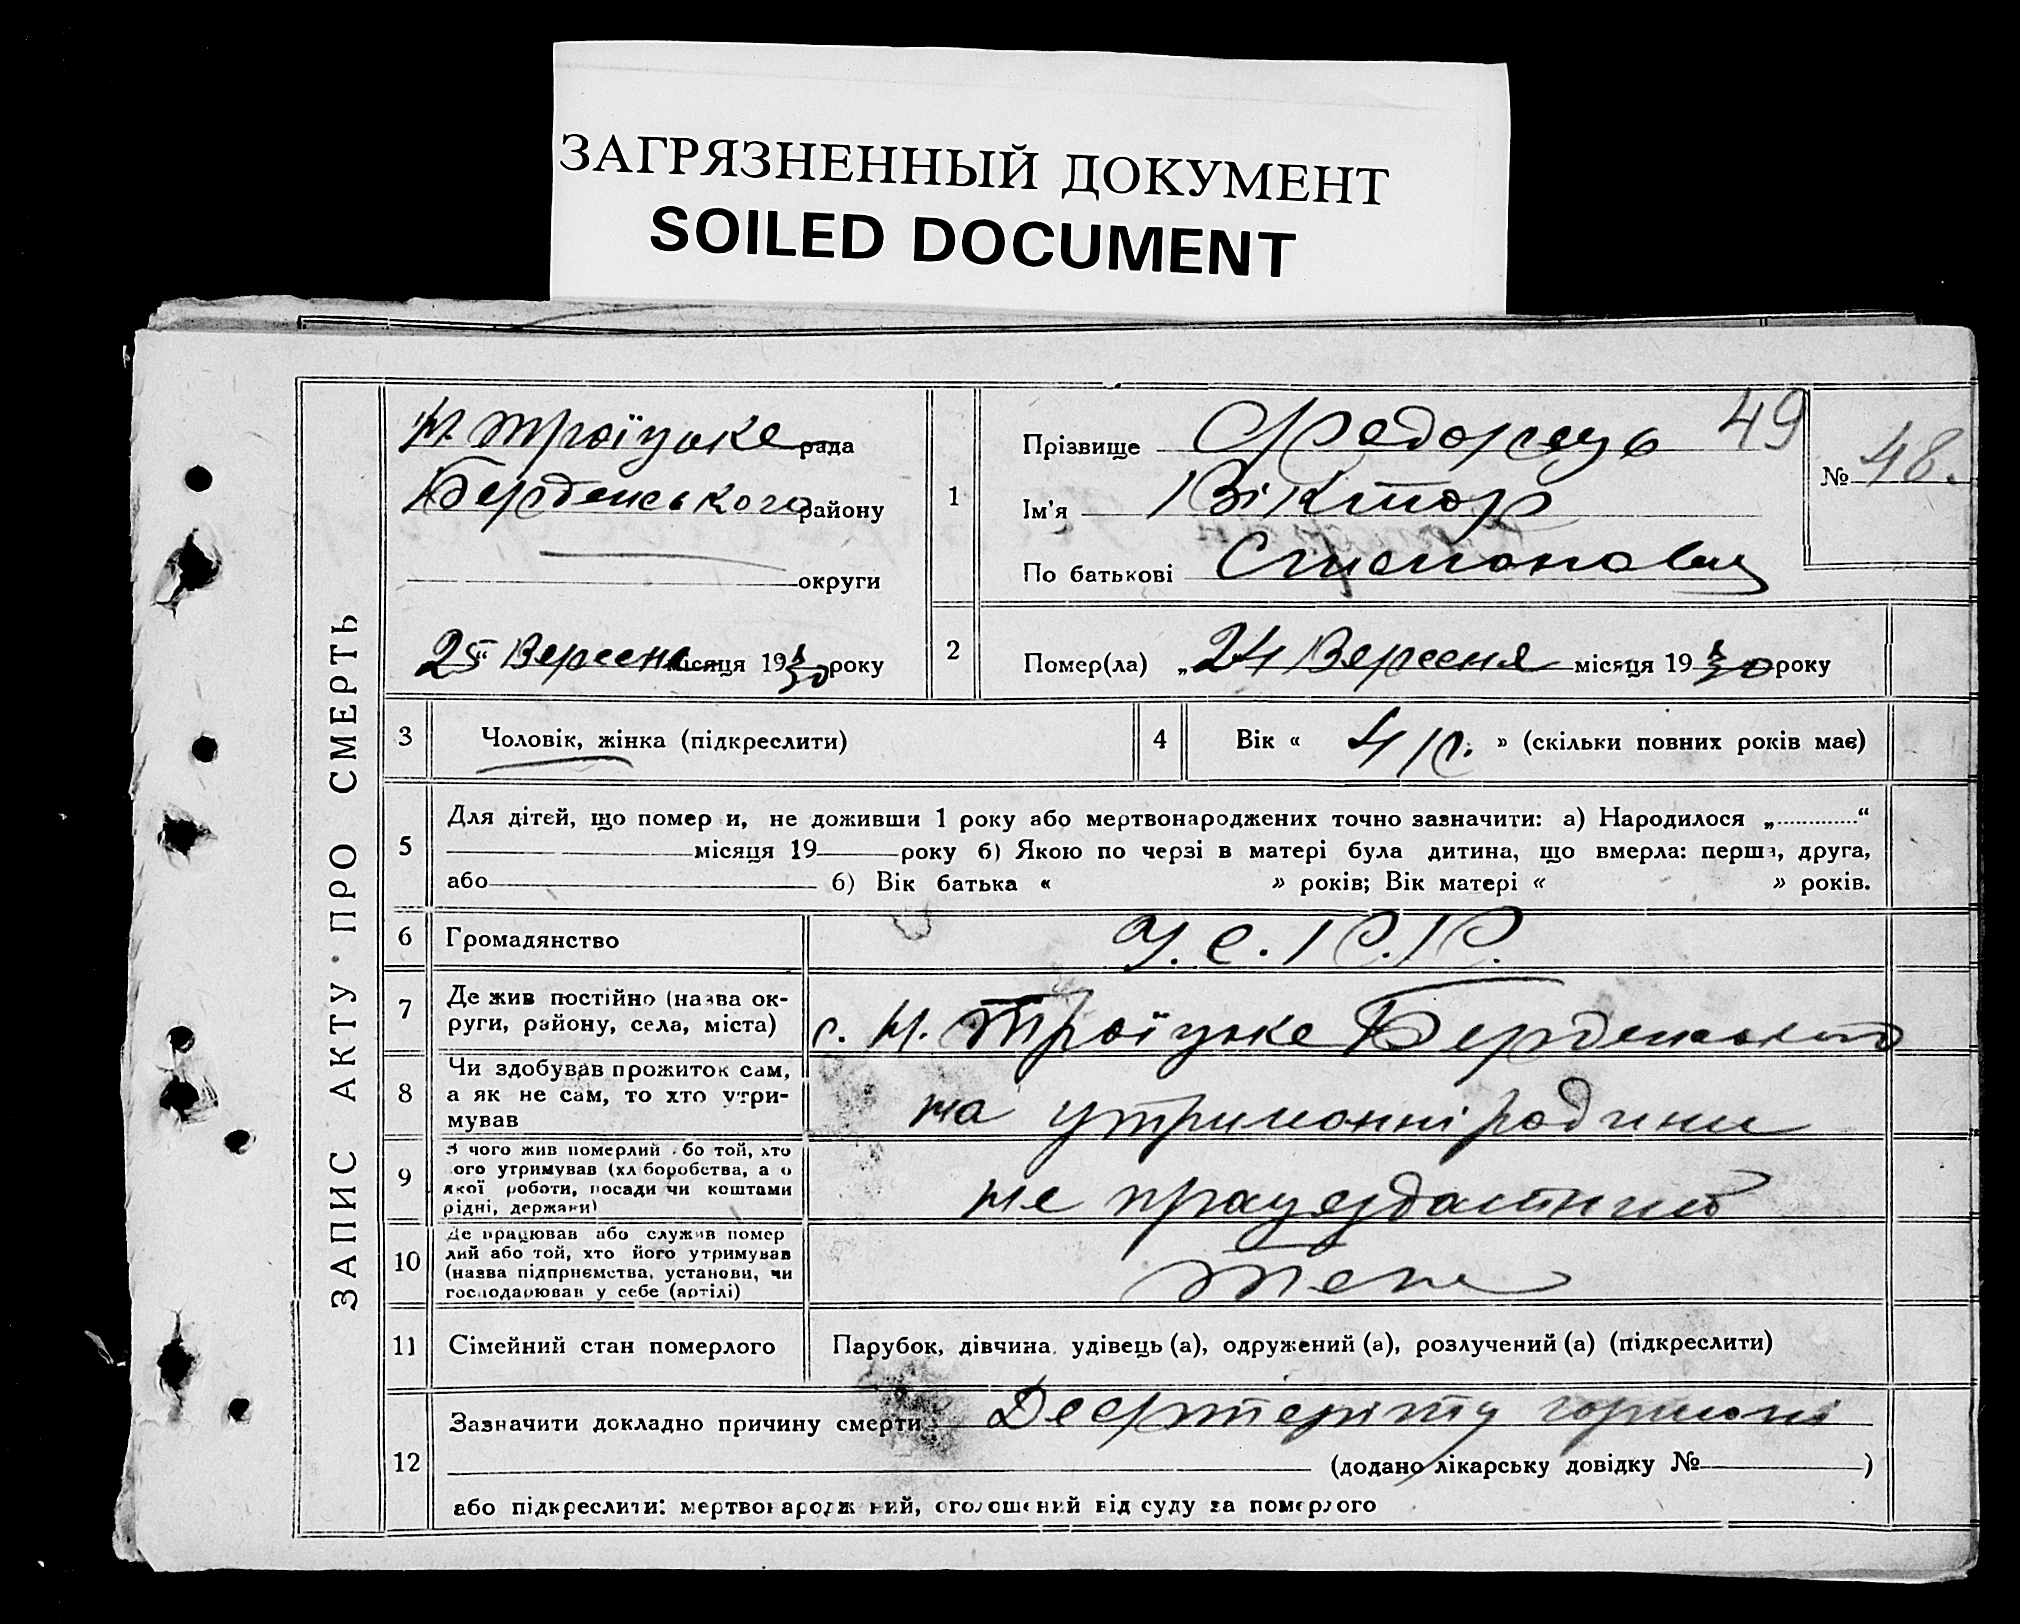 ЗАГРЯЗНЕННЫЙ ДОКУМЕНТ
SOILED DOCUMENT
ЗАПИС АКТУ ПРО СМЕРТЬ
Н. Троїцьке рада
Берденського району
округи
25 Вересня місяця 1930 року
1
Прізвище Федорець
49
Ім'я Віктор
По батькові Степанович
№ 48.
2
Помер(ла) „24 Вересня місяця 1930 року
3 Чоловік, жінка (підкреслити)
4 Вік « 4 р. » (скільки повних років має)
5 Для дітей, що помер и, не доживши 1 року або мертвонароджених точно зазначити: а) Народилося „ “
місяця 19 року б) Якою по черзі в матері була дитина, що вмерла: перша, друга,
або б) Вік батька « » років; Вік матері « » років.
6 Громадянство У.С.Р.Р.
7 Де жив постійно (назва ок-
руги, району, села, міста) с. Н. Троїцьке Берденського
8 Чи здобував прожиток сам,
а як не сам, то хто утри-
мував
на утриманні родини
9 З чого жив померлий або той, хто
ого утримував (хл боробства, а о
якої роботи, посади чи коштами
рідні, держави)
не працездатний
10 Де працював або служив помер
лий або той, хто його утримував
(назва підприємства, установи, чи
господарював у себе (артілі)
теж
11 Сімейний стан померлого Парубок, дівчина, удівець (а), одружений (а), розлучений (а) (підкреслити)
12 Зазначити докладно причину смерти
(додано лікарську довідку № )
або підкреслити: мертвонароджений, оголошений від суду за померлого